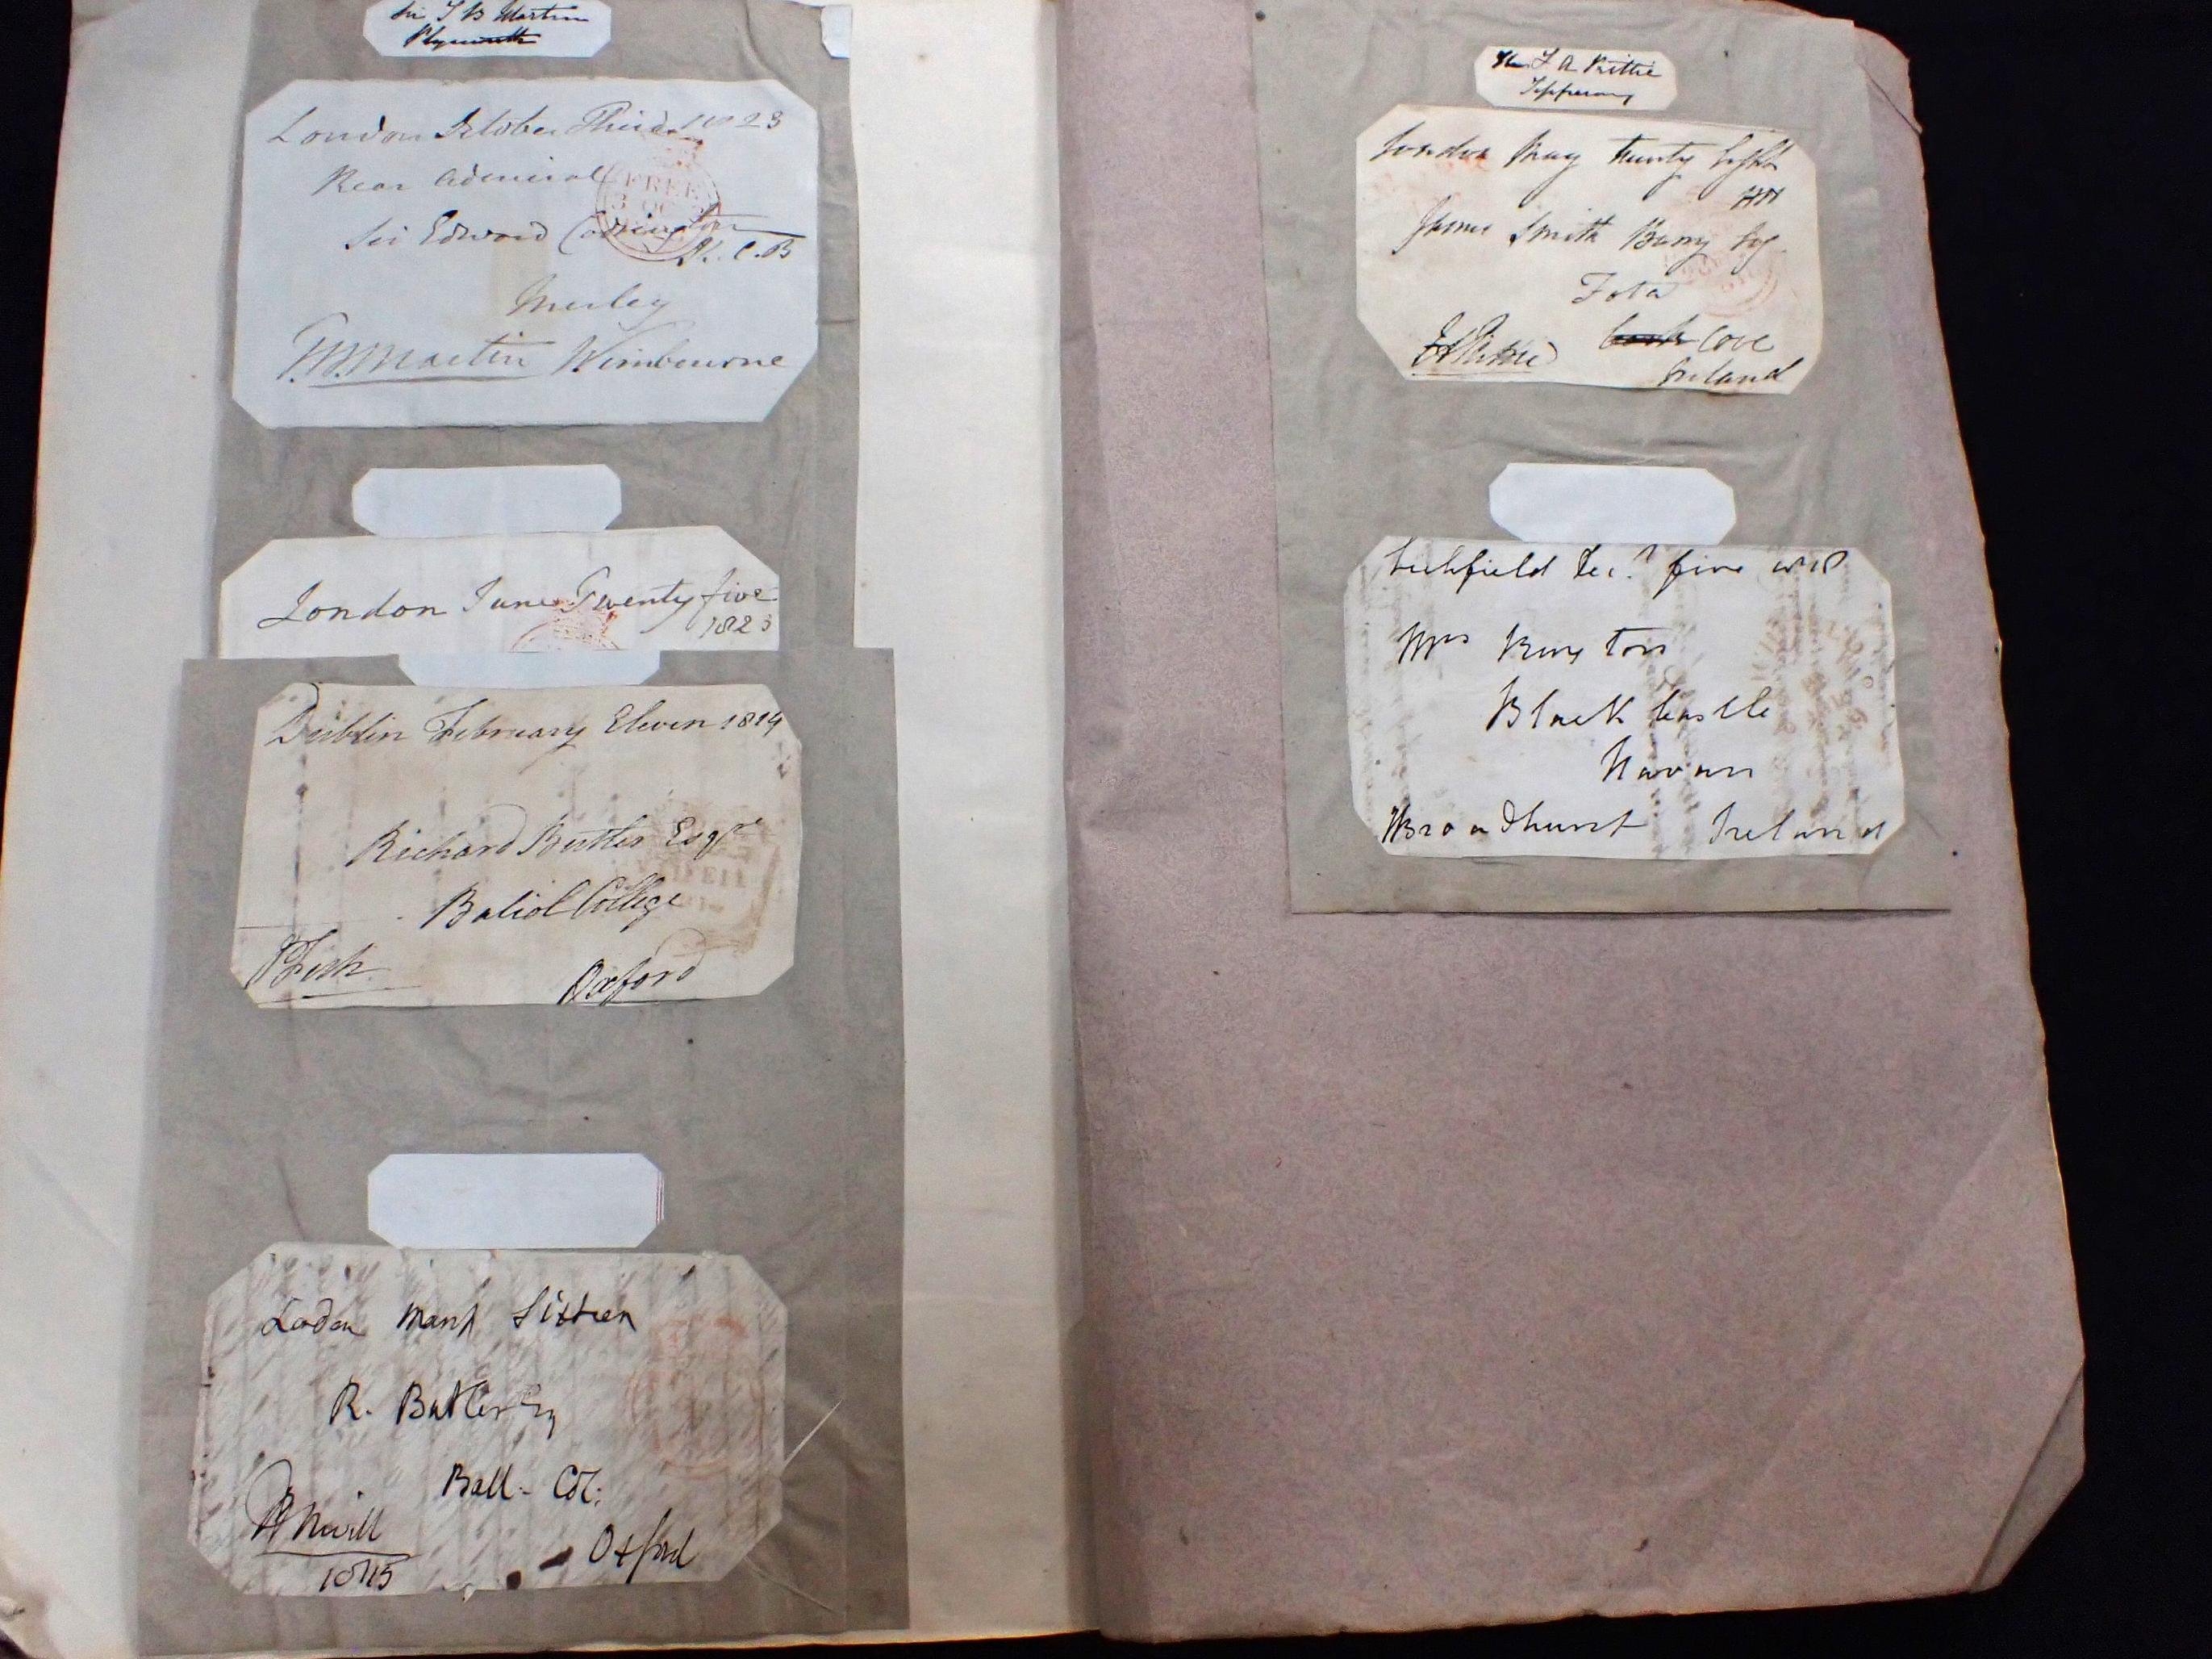 Sir T B Martin
Plymouth
London October Third 1823
Rear Admiral
Sir Edward Codrington
K.C.B
FREE
3 OC
Merley
T.B.Martin Wimbourne
London June Twenty five
1823
Dublin February Eleven 1814
Richard Butler Esqre
Baliol College
Oxford
London March Sixteen
R. Butler Esq
Ball. Col:
Nevill
Oxford
1815
F A Prittie
Tipperary
London May twenty Eight
James Smith Barry Esq
Fota
Cork Cove
FAPrittie
Ireland
Lichfield Decr five
Mrs Ruxton
Black Castle
Navan
Broadhurst Ireland